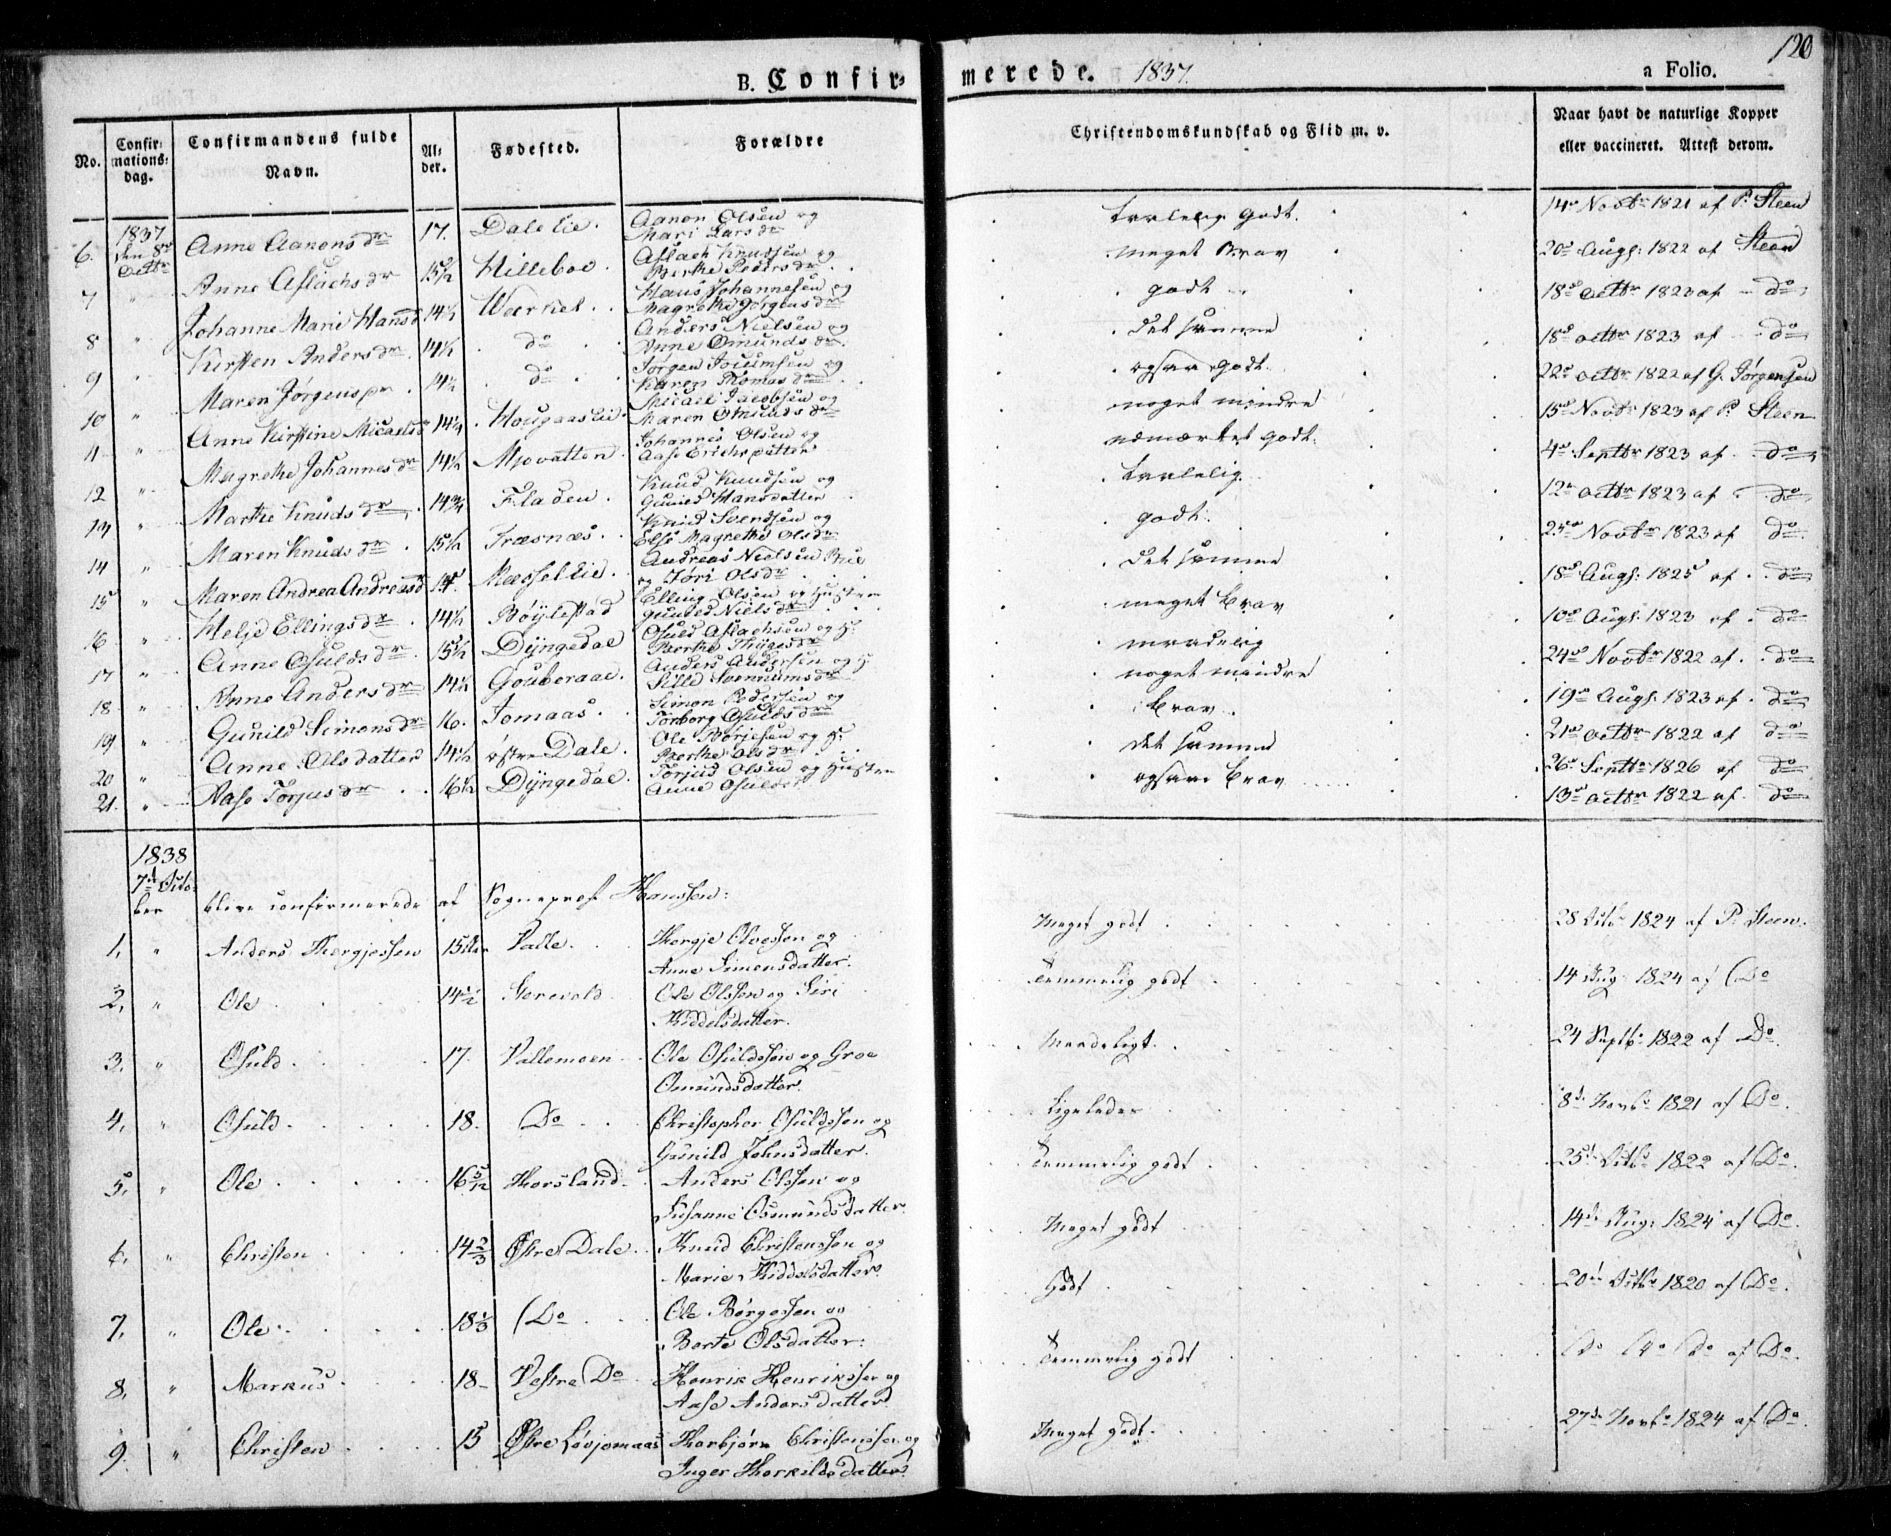 B. Confirmerede. 1837. a Folio. 120
No. Confirmationsdag. Confirmandens fulde Navn. Alder. Fødested. Forældre Christendomskundskab og Flid m. v. Naar havt de naturlige Kopper eller vaccineret. Attest derom.
6. 1837 den 8de Octbr Anne Aanonsdr 17. Dalelie. Aanon Olsen og Mari Larsdr taalelig godt. 14de Novbr 1821 af P. Steen
7 " Anne Aslachsdr 15 1/2 Hilleboe. Aslach Knudsen og Berthe Pedersdr meget brav 20de Augs: 1822 af Steen
8 " Johanne Marie Hansd 14 1/2 Hans Johannesen og Magrethe Jørgensdr godt 18de octbr 1823 af do
9 " Kirsten Andersdr 14 1/2 do Anders Nielsen og Anne Omundsdr det samme 18de octbr 1823 af do
10 " Maren Jørgens 14 1/2 do Jørgen og Karen Thomasdr ogsaa godt. 22de octbr 1822 af G. Jørgensen
11 " Anne Kirstine Micaelsd 14 1/4 Hougaaslie Micael Jacobsen og Maren Omundsdr noget mindre 15de Novbr 1823 af P. Steen
12 " Magrethe Johannesdr 14 1/2 Mjovatten Johannes Olsen og Aase Erichsdatter udmærket godt. 4de Septbr 1823 af do
13 " Marthe Knudsdr 14 3/4 Fladen. Knud Knudsen og Guned Hansdatter taalelig 12te octbr 1823 af do
14 " Maren Knudsdr 15 1/2 Træsnæs. Knud Svendsen og Else Magrethe Olsdr godt. 25de Novbr 1823 af do
15 " Maren Andrea Andreasd 14. Mæssellie. Andreas Nielsen og Jøri Olsdr det samme 18de Augs: 1825 af do
16 " Helje Ellingsdr 14 1/2 Bøylestad Elling Olsen og Hustru Guned Nielsdr meget brav 10de Augs: 1823 af do
17 " Anne Osuldsdr 15 1/2 Dyngedal Osuld Aslachsen og H: Berthe Thygesdr maadelig 24de Novbr 1822 af do
18 " Anne Andersdr 14 1/2 Gouberaae. Anders Andersen og H Sille noget mindre 19de Augs: 1823 af do
19 " Gunild Simonsdr 16. Jomaas. Simon Pedersen og Torborg Osuldsdr brav. 21de octbr 1822 af do
20 " Anne Olsdatter 14 1/2 østre Dale. Ole Børjesen og H: Berthe Olsdr det samme 26de Septbr 1826 af do
21. " Aase Torjusdr 16 1/2 Dyngedal. Torjus Olsen og Hustru Anne Osulds ogsaa brav 13de octbr 1822 af do
1838 7de October bleve confirmerede af Sognepræst Hanssen:
1, " Anders Thergjessen 15 Valle. Thergje Olvessen og Anne Simonsdatter. Meget godt 28 Octbr 1824 af P. Steen.
2, " Ole 14 1/2 Ole Olssen og Siri Kiddelsdatter. Temmelig godt 14 Aug: 1824 af Do
3, " Osuld 17. Vallemoen Ole Osuldssen og Groe Omundsdatter. Maadeligt. 24 Septbr 1822 af Do.
4, " Osuld 18. Do Christopher Osuldssen og Gunild Johnsdatter. Ligeledes 8de Novbr 1821 af Do.
5, " Ole 16 5/12 Thorsland. Anders Olssen og Susanne Osmundsdatter. Temmelig godt 25de Octbr 1822 af Do.
6, " Christen 14 2/3 Østre Dale. Knud Christenssen og Marie Kiddelsdatter. Meget godt 14de Aug: 1824 af Do.
7, " Ole 18 1/3 Do Ole Børgessen og Berte Olsdatter: Godt 20de Octbr 1820 af Do.
8, " Markus 18 Vestre Do Henrik Henrikssen og Aase Andersdatter Temmelig godt Do Do Do af Do.
9. " Christen 15 Østre Løvjomaas Thorbjørn Christenssen og Inger Thorkildsdatter. Meget godt. 27de Novbr 1824 af Do.